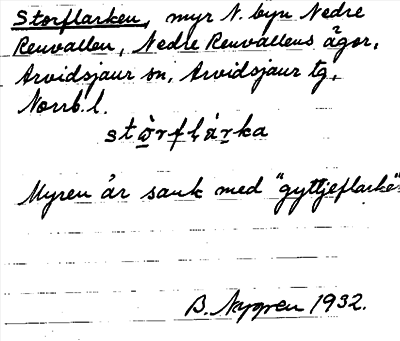 Storflarken, myr N. byn Nedre
Renvallen, Nedre Renvallens ägor,
Arvidsjaur sn, Arvidsjaur tg,
Norrb. l.
stò̱rfláṟka
Myren är sank med "gyttjeflarke"
B. Nygren 1932.